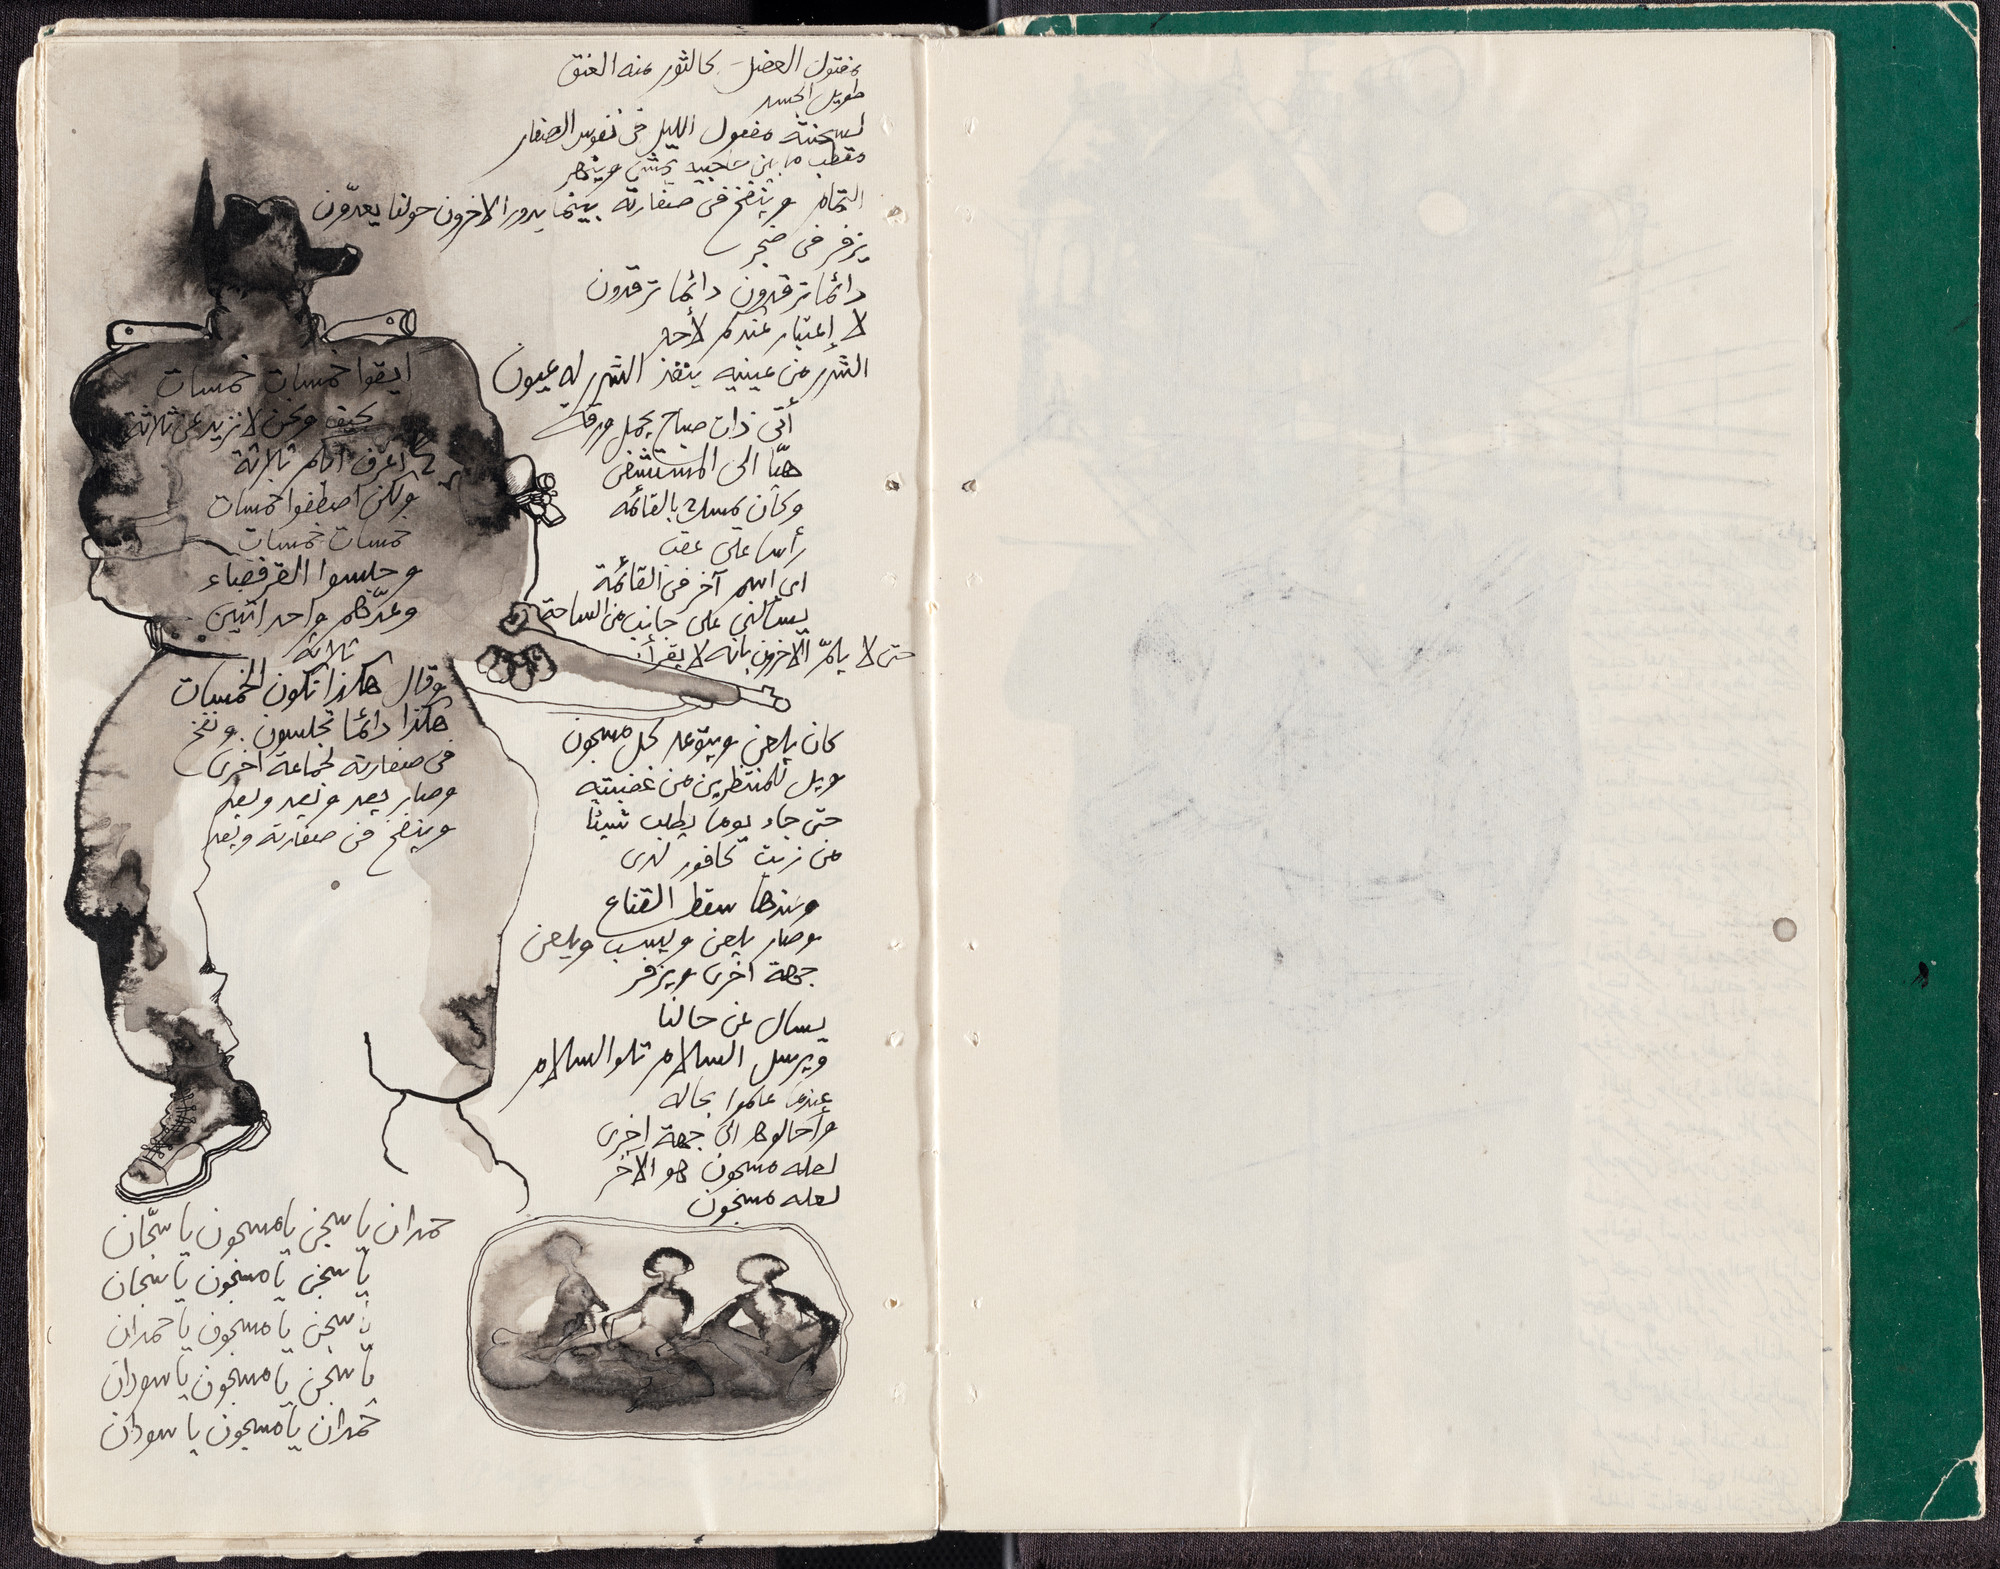 مفتول العضل كالثور منه العنق
طويل الجسد
لسحنته مفعول الليل في نفوس الصغار
مقطب ما بين حاجبيه
التمام وينفخ في صفارته بينما يدور الاخرون حولنا يعدّون
يزفر في ضجر
دائما ترقدون دائما ترقدون
لا إعتبار عندكم لأحد
الشرر من عينيه ينفذ الشرر له عيون
أتى ذات صباح يحمل ورقة
هيّا الى المستشفى
وكان يمسك بالقائمه
رأسا على عقب
اي اسم آخر في القائمة
يسألني على جانب من الساحة
حتى لا يلمّ الآخرون بأنه لا يقرأ
كان يلعن ويتوعد كل مسجون
ويل للمنتظرين من غضبته
حتى جاء يوما يطلب شيئا
من زيت كافور لدى
وعندها سقط القناع
وصار يلعن ويسب ويلعن
جهة اخرى ويزفر
يسال عن حالنا
ويرسل السلام تلو السلام
عندما علموا بحاله
وأحالوه الى جهة اخرى
لعله مسجون هو الاخر
لعله مسجون
ايقوا خمسات خمسات
كيف ونحن لا نزيد على ثلاثة
لا اعرف انكم ثلاثة
ولكن اصطفوا خمسات
خمسات خمسات
وجلسوا القرفصاء
وعدّهم واحد اثنين
ثلاثة
وقال هكذا تكون الخمسات
هكذا دائما تجلسون. ونفخ
في صفارته لجماعة اخرى
وصار يعد ونعد ويعد
وينفخ في صفارته ويعد
حمدان يا سجن يا مسجون يا سجّان
يا سجن يا مسجون يا سجان
يا سجن يا مسجون يا حمدان
يا سجن يا مسجون يا سودان
حمدان يا مسجون يا سودان